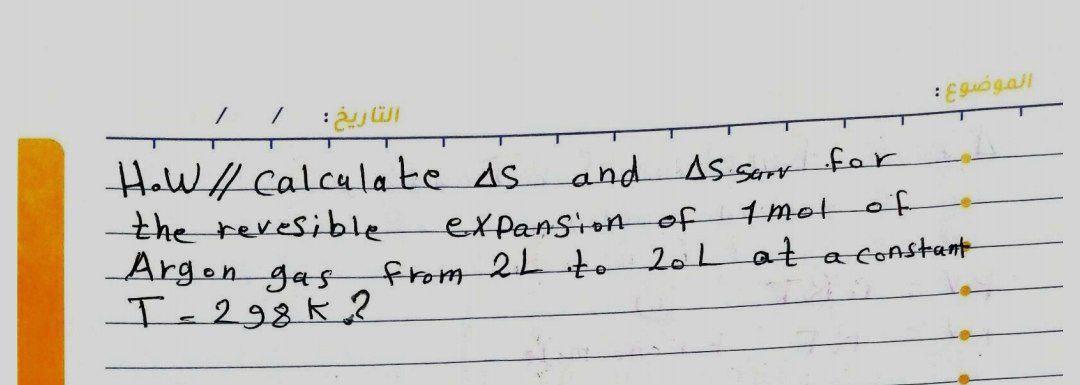 الموضوع:
التاريخ: / /
H.W// Calculate ΔS and ΔS surr for
the revesible expansion of 1mol of
Argon gas from 2L to 20L at a constant
T = 298 K ?